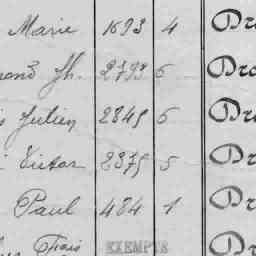 Marie 1693 4 Dr
Jh. 2793 6 Dr
Julien 2845 6 Dr
Victor 2375 5 Dr
Paul 484 1 Dr
Frais EXEMPTS Dr